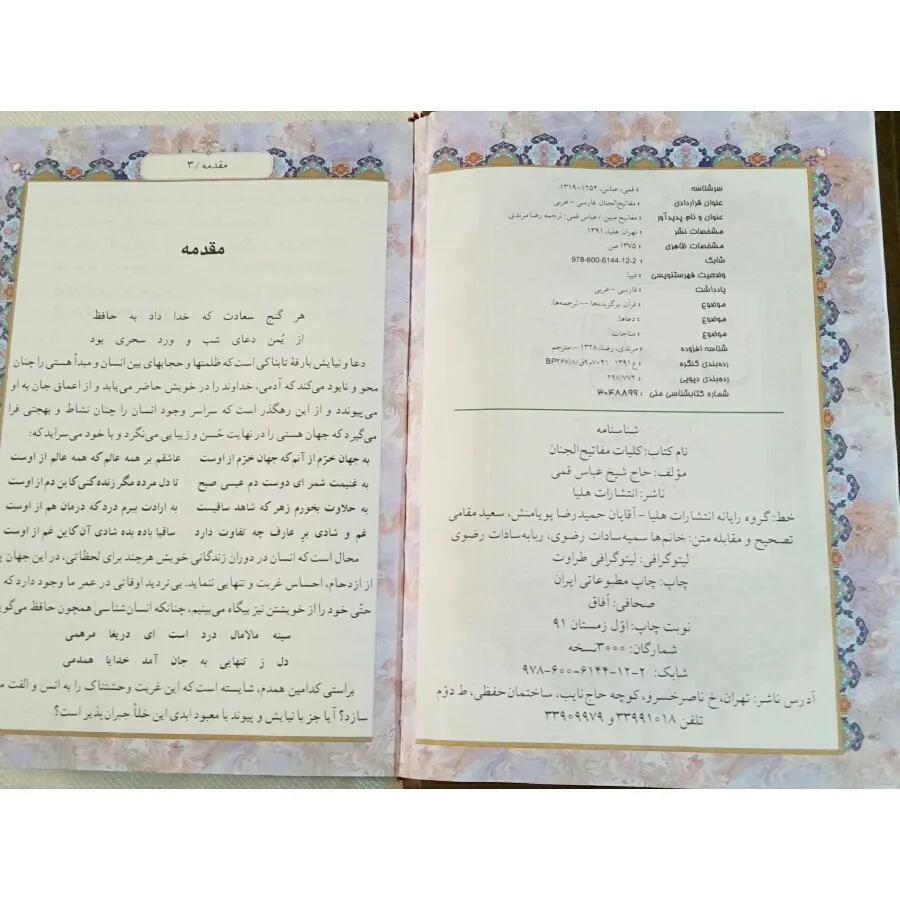 سرشناسه : قمی، عباس، ۱۲۵۴-۱۳۱۹.
عنوان قراردادی : مفاتیح‌الجنان. فارسی - عربی
عنوان و نام پدیدآور : مفاتیح مبین / عباس قمی؛ ترجمه رضا مرندی.
مشخصات نشر : تهران: هلیا، ۱۳۹۱.
مشخصات ظاهری : ۱۳۷۵ ص.
شابک : 978-600-6144-12-2
وضعیت فهرستنویسی : فیپا.
یادداشت : فارسی - عربی
موضوع : قرآن. برگزیده‌ها -- ترجمه‌ها.
موضوع : دعاها.
موضوع : مناجات
شناسه افزوده : مرندی، رضا، ۱۳۲۸ -، مترجم
رده‌بندی کنگره : ۱۳۹۱ ۷۰۴۱م۸ق/BP۲۶۷/۸
رده‌بندی دیویی : ۲۹۷/۷۷۲
شماره کتابشناسی ملی : ۳۰۴۸۸۹۹
شناسنامه
نام کتاب: کلیات مفاتیح‌الجنان
مؤلف: حاج شیخ عباس قمی
ناشر: انتشارات هلیا
خط: گروه رایانه انتشارات هلیا - آقایان حمیدرضا پویامنش، سعید مقامی
تصحیح و مقابله متن: خانم‌ها سمیه‌سادات رضوی، ربابه‌سادات رضوی
لیتوگرافی: لیتوگرافی طراوت
چاپ: چاپ مطبوعاتی ایران
صحافی: آفاق
نوبت چاپ: اوّل زمستان ۹۱
شمارگان: ۳۰۰۰نسخه
شابک: ۲-۱۲-۶۱۴۴-۶۰۰-۹۷۸
آدرس ناشر: تهران، خ ناصرخسرو، کوچه حاج‌نایب، ساختمان‌حفظی، ط دوّم
تلفن ۳۳۹۹۱۰۱۸ و ۳۳۹۰۹۹۷۹
مقدمه /۳
مقدمه
هر گنج سعادت که خدا داد به حافظ
از یُمن دعای شب و ورد سحری بود
دعا و نیایش بارقهٔ تابناکی است که ظلمتها و حجابهای بین انسان و مبدأ هستی را چنان
محو و نابود می‌کند که آدمی، خداوند را در خویش حاضر می‌یابد و از اعماق جان به او
می‌پیوندد و از این رهگذر است که سراسر وجود انسان را چنان نشاط و بهجتی فرا
می‌گیرد که جهان هستی را در نهایت حُسن و زیبایی می‌نگرد و با خود می‌سراید که:
به جهان خرّم از آنم که جهان خرّم از اوست عاشقم بر همه عالم که همه عالم از اوست
به غنیمت شمر ای دوست دم عیسی صبح تا دل مرده مگر زنده کنی کاین دم از اوست
به حلاوت بخورم زهر که شاهد ساقیست به ارادت ببرم درد که درمان هم از اوست
غم و شادی بر عارف چه تفاوت دارد ساقیا باده بده شادی آن کاین غم از اوست
محال است که انسان در دوران زندگانی خویش هرچند برای لحظاتی، در این جهان
از ازدحام، احساس غربت و تنهایی ننماید. بی‌تردید اوقاتی در عمر ما وجود دارد که
حتّی خود را از خویشتن نیز بیگانه می‌بینیم، چنانکه انسان‌شناسی همچون حافظ می‌گوید
سینه مالامال درد است ای دریغا مرهمی
دل ز تنهایی به جان آمد خدایا همدمی
براستی کدامین همدم، شایسته است که این غربت وحشتناک را به انس و الفت
سازد؟ آیا جز با نیایش و پیوند با معبود ابدی این خلأ جبران‌پذیر است؟